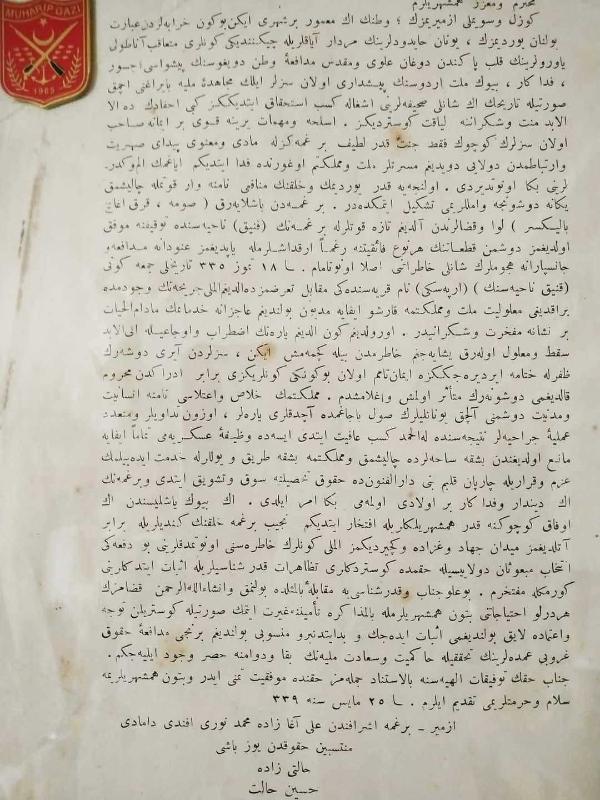 MUHARİP GAZİ
1965
محترم و معزز همشهریلرم
كوزل و سویملی ازمیریمزك ؛ وطنك اك معمور بر شهری ایكن بوكون خرابه لردن عبارت
بولنان یوردیمزك ، یونان حایدودلرینك مردار آیاقلریله چیكنندیكی كونلری متعاقب آناطولی
یاورولرینك قلب پاكندن دوغان علوی و مقدس مدافعۀ وطن دویغوسنك پیشواسی اجسور
، فداكار ، بیوك ملت اردوسنك پیشداری اولان سزلر ایلك مجاهدۀ ملیه بایراغنی آچمق
صورتیله تاریخك اك شانلی صحیفه لرینی اشغاله كسب استحقاق ایتدیككز كبی احفادك ده الا
الابد منت و شكراننه لیاقت كوستردیكز . اسلحه و مهمات یرینه قوی بر ایمانه صاحب
اولان سزلرك كوچوك فقط جنت قدر لطیف برغمه كزله مادی و معنوی پیدای صهریت
وارتباطمدن دولایی دویدیغم مسرتلر ملت و مملكتم اوغورنده فدا ایتدیكم ایاغمك الم و كدر
لرینی بكا اونوتدیردی . اولنجه یه قدر یوردیمك و خلقنك منافعی نامنه وار قوتمله چالیشمق
یكانه دوشونجه و امللریمی تشكیل ایتمكده در . برغمه دن باشلایه رق ( صومه ، قرق اغاج
بالیكسر ) لوا و قضالرندن آلدیغم تازه قوتلرله برغمه نك ( قنیق ) ناحیه سنده توقیفنه موفق
اولدیغمز دوشمن قطعاتنك هر نوع فائقیتنه رغماً ارقداشلرمله یاپدیغمز عنودانه مدافعه و
جانسپارانه هجوملرك شانلی خاطراتنی اصلا اونوتمام . ١٨ تموز ٣٣٥ تاریخلی جمعه كونی
( قنیق ناحیه سنك ) ( ارپه سكی ) نام قریه سنده كی مقابل تعرضمزده آلدیغم الملی جریحه نك وجودمده
براقدیغی معلولیت ملت و مملكتمه قارشو ایفایه مدیون بولندیغم عاجزانه خدمامك مادام الحیات
بر نشانه مفخرت و شكرانیدر . اورولدیغم كون آلدیغم یاره نك اضطراب و اوجاعیله الی الابد
سقط و معلول اوله رق یشایه جغم خاطرمدن بیله كچمه مش ایكن ، سزلردن آیری دوشه رك
ظفرله ختامه ایردیره جككزه ایمان تامم اولان بوكونكی كونلریكزی برابر ادراكدن محروم
قالدیغمی دوشونه رك متأثر اولمش و اغلامشدم . مملكتمك خلاص و اعتلاسی نامنه انسانیت
و مدنیت دوشمنی آلچق یونانلیلرك صول باجاغمده آچدقلری یاره لر ، اوزون تداویلر و متعدد
عملیۀ جراحیه لر نتیجه سنده لله الحمد كسب عافیت ایتدی ایسه ده وظیفۀ عسكریه می تماماً ایفایه
مانع اولدیغندن بشقه ساحه لرده چالیشمق و مملكتمه بشقه طریق و یوللرله خدمت ایده بیلمك
عزم و قراریله چارپان قلبم بنی دارالفنونده حقوق تحصیلنه سوق و تشویق ایتدی و برغمه نك
اك دیندار و فداكار بر اولادی اولمه می بكا امر ایلدی . اك بیوك یاشلیسندن اك
اوفاق كوچوكنه قدر همشهریلكلریله افتخار ایتدیكم نجیب برغمه خلقنك كندیلریله برابر
آتلدیغمز میدان جهاد و غزاده و كچیردیكمز الملی كونلرك خاطره سنی اونوتمدقلرینی بو دفعه كی
انتخاب مبعوثان دولاییسیله حقمده كوستردكلری تظاهرات قدرشناسیلریله اثبات ایتدكلرینی
كورمكله مفتخرم . بو علو جناب و قدرشناسی یه مقابلۀ بالمثلده بولنمق و انشاءالله الرحمن قضامزك
هر درلو احتیاجاتنی بتون همشهریلرمله بالمذاكره تأمیننه غیرت ایتمك صورتیله كوستریلن توجه
و اعتماده لایق بولندیغمی اثبات ایده جك و بدایتدنبرو منسوبی بولندیغم برنجی مدافعۀ حقوق
غروپی عمده لرینك تحققیله حاكمیت و سعادت ملیه نك بقا و دوامنه حصر وجود ایلیه جكم .
جناب حقك توفیقات الهیه سنه بالاستناد جمله مز حقنده موفقیت تمنی ایدر و بتون همشهریلریمه
سلام و حرمتلریمی تقدیم ایلرم . ٢٥ مایس سنه ٣٣٩
ازمیر ـ برغمه اشرافندن علی آغا زاده محمد نوری افندی دامادی
منتسبین حقوقدن یوز باشی
حالتی زاده
حسین حالت